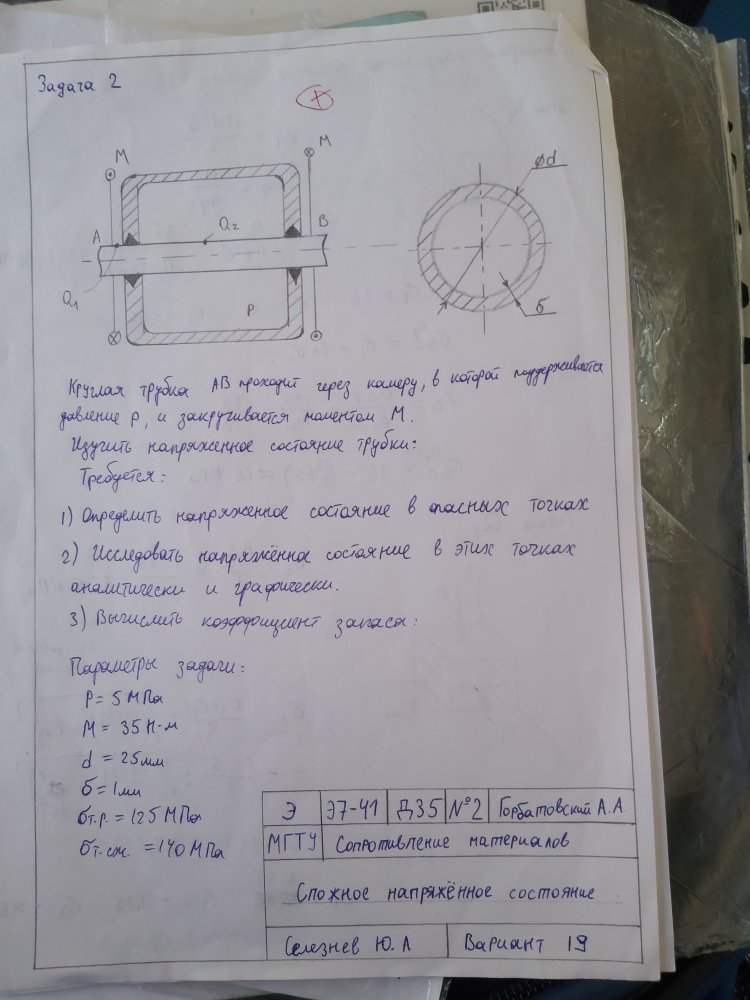 Задача 2
M
M
A
Q₂
B
Q₁
P
φd
б
Круглая трубка AB проходит через камеру, в которой поддерживается
давление р, и закручивается моментом М.
Изучить напряженное состояние трубки:
Требуется:
1) Определить напряженное состояние в опасных точках
2) Исследовать напряжённое состояние в этих точках
аналитически и графически.
3) Вычислить коэффициент запаса:
Параметры задачи:
P = 5 МПа
M = 35 Н·м
d = 25 мм
б = 1 мм
бт.р. = 125 МПа
бт.сж. = 140 МПа
Э Э7-41 Д35 №2 Горбатовский А.А.
МГТУ Сопротивление материалов
Сложное напряжённое состояние
Селезнев Ю.А Вариант 19